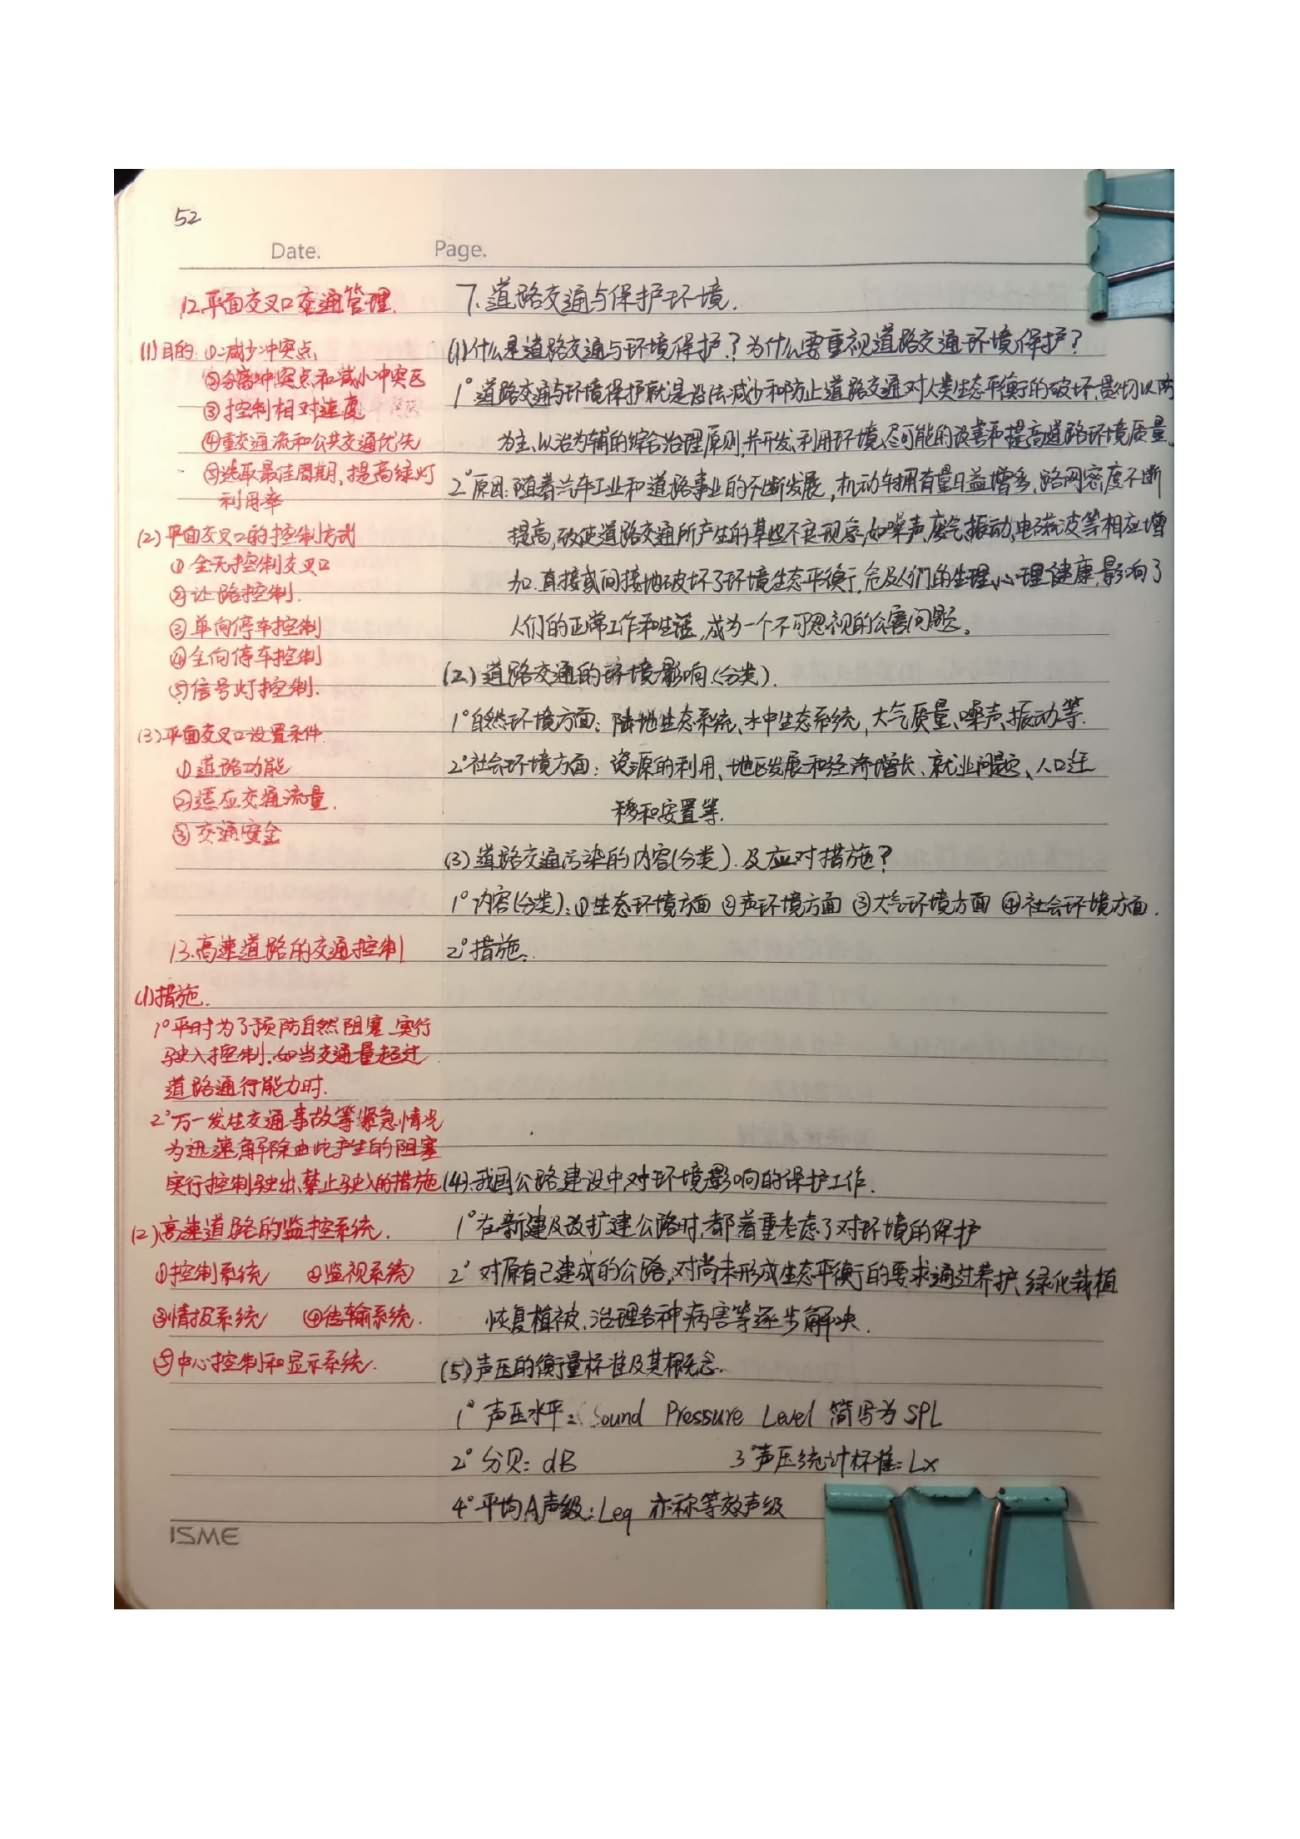 52
Date.
Page.
12.平面交叉口交通管理.
(1)目的:①减少冲突点
②分离冲突点和减小冲突区
③控制相对速度
④重交通流和公共交通优先
⑤选取最佳周期,提高绿灯
利用率
(2)平面交叉口的控制方式
①全无控制交叉口
②让路控制.
③单向停车控制
④全向停车控制
⑤信号灯控制.
(3)平面交叉口设置条件.
①道路功能
②适应交通流量.
③交通安全
13.高速道路的交通控制
(1)措施.
1°平时为了预防自然阻塞、实行
驶入控制.如当交通量超过
道路通行能力时.
2°万一发生交通事故等紧急情况
为迅速解除由此产生的阻塞
实行控制驶出、禁止驶入的措施
(2)高速道路的监控系统.
①控制系统 ②监视系统
③情报系统 ④传输系统.
⑤中心控制和显示系统.
7.道路交通与保护环境.
(1)什么是道路交通与环境保护?为什么要重视道路交通环境保护?
1°道路交通与环境保护就是设法减少和防止道路交通对人类生态平衡的破坏、影响以防
为主,以治为辅的综合治理原则,并开发、利用环境,尽可能的改善和提高道路环境质量.
2°原因:随着汽车工业和道路事业的不断发展,机动车拥有量日益增多,路网密度不断
提高,致使道路交通所产生的某些不良现象,如噪声、废气、振动、电磁波等相应增
加.直接或间接地破坏了环境生态平衡,危及人们的生理、心理健康,影响了
人们的正常工作和生活,成为一个不可忽视的公害问题。
(2)道路交通的环境影响(分类).
1°自然环境方面:陆地生态系统、水中生态系统,大气质量、噪声、振动等.
2°社会环境方面:资源的利用、地区发展和经济增长、就业问题、人口迁
移和安置等.
(3)道路交通污染的内容(分类).及应对措施?
1°内容(分类):①生态环境方面 ②声环境方面 ③大气环境方面 ④社会环境方面.
2°措施:
(4).我国公路建设中对环境影响的保护工作.
1°在新建及改扩建公路时,都着重考虑了对环境的保护
2°对原有已建成的公路,对尚未形成生态平衡的要求通过养护、绿化栽植
恢复植被、治理各种病害等逐步解决.
(5)声压的衡量标准及其概念.
1°声压水平:Sound Pressure Level 简写为 SPL
2°分贝:dB 3°声压统计标准:Lx
4°平均A声级:Leq 亦称等效声级
ISME